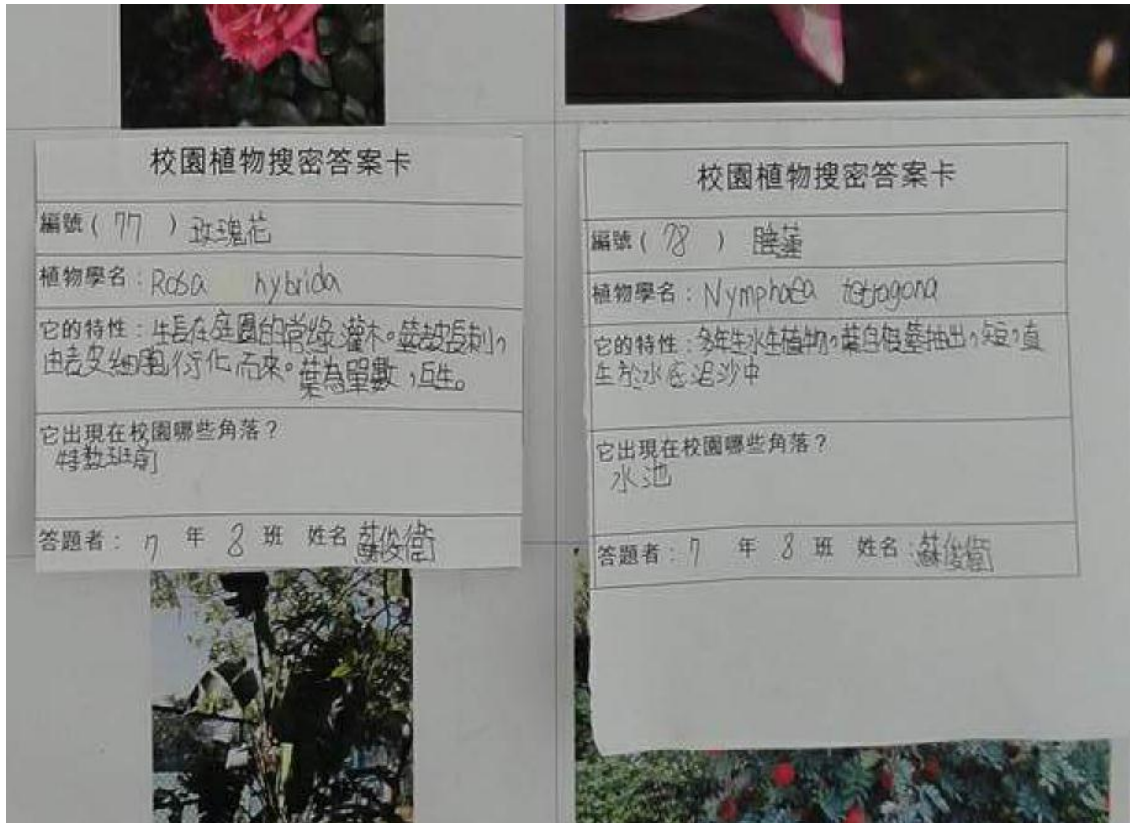 校園植物搜密答案卡
編號( 77 ) 玫瑰花
植物學名:Rosa hybrida
它的特性:生長在庭園的常綠灌木。莖部長刺,
由表皮細胞衍化而來。葉為單數,互生。
它出現在校園哪些角落?
特教班前
答題者: 7 年 8 班 姓名 蘇俊衛
校園植物搜密答案卡
編號( 78 ) 睡蓮
植物學名:Nymphaea tetragona
它的特性:多年生水生植物,葉自根莖抽出,短,直
生於水底泥沙中
它出現在校園哪些角落?
水池
答題者:7 年 8 班 姓名:蘇俊衛